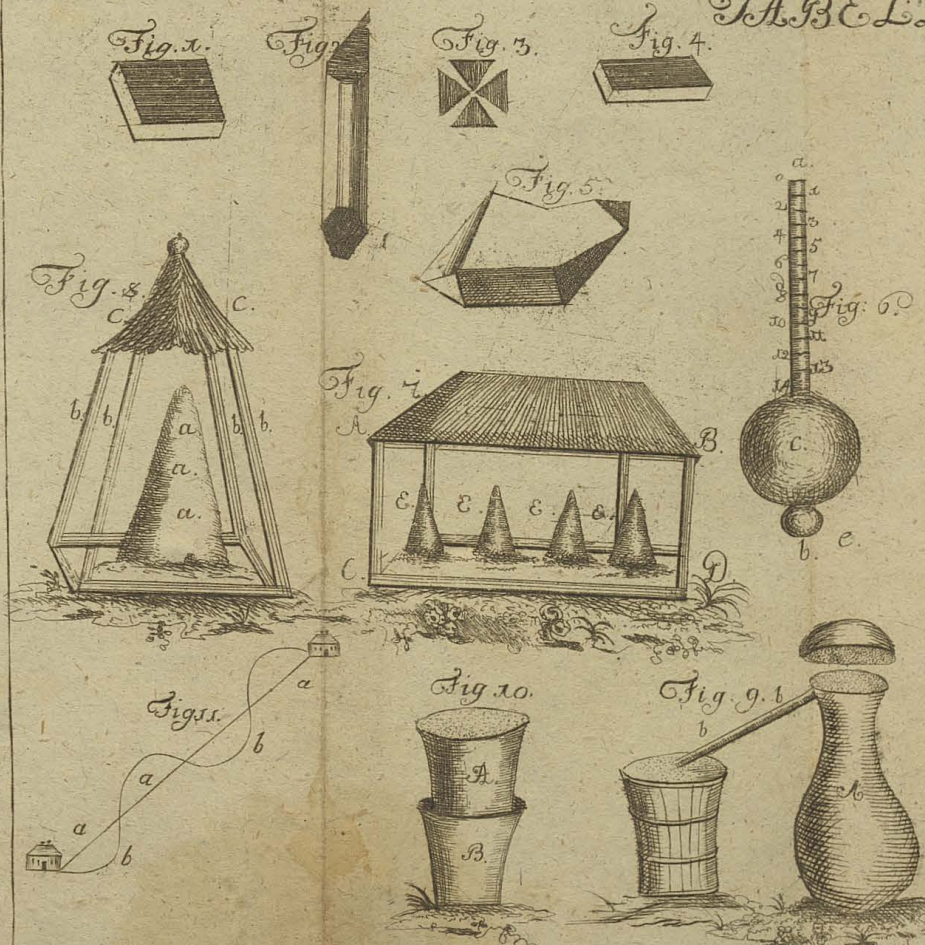 TABEL
Fig. 1.
Fig
Fig. 3.
Fig. 4.
1
Fig. 5.
a.
0 1
2 3
4 5
6 7
8 9
10 11
12 13
14
Fig: 6.
C.
b. e.
Fig. 8.
C. C.
b. b. b. b.
a.
a.
a.
Fig. 7.
A B
E. E. E. &.
C. D.
Fig 11.
a
b
a
a
b
Fig. 10.
A.
B.
Fig. 9.
b
b
A